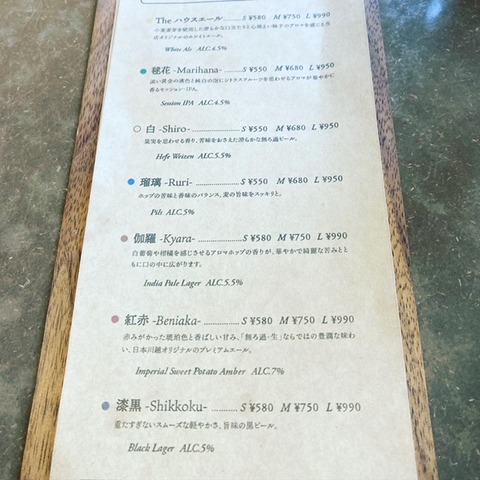 The ハウスエール S ¥580 M ¥750 L ¥990
小麦麦芽を使用した滑らかな口当たりと心地よい柚子のアロマを感じる当
店オリジナルのホワイトエール。
White Ale ALC.4.5%
毬花 -Marihana- S ¥550 M ¥680 L ¥950
淡い黄金の液色と純白の泡にシトラスフルーツを思わせるアロマが華やかに
香るセッションIPA。
Session IPA ALC.4.5%
白 -Shiro- S ¥550 M ¥680 L ¥950
果実を思わせる香り、苦味をおさえた滑らかな無ろ過ビール。
Hefe Weizen ALC.5.5%
瑠璃 -Ruri- S ¥550 M ¥680 L ¥950
ホップの苦味と香味のバランス、麦の旨味をスッキリと。
Pils ALC.5%
伽羅 -Kyara- S ¥580 M ¥750 L ¥990
白葡萄や柑橘を感じさせるアロマホップの香りが、華やかで綺麗な苦みとと
もに口の中に広がります。
India Pale Lager ALC.5.5%
紅赤 -Beniaka- S ¥580 M ¥750 L ¥990
赤みがかった琥珀色と香ばしい甘み、「無ろ過・生」ならではの豊潤な味わ
い、日本川越オリジナルのプレミアムエール。
Imperial Sweet Potato Amber ALC.7%
漆黒 -Shikkoku- S ¥580 M ¥750 L ¥990
重たすぎないスムーズな軽やかさ、旨味の黒ビール。
Black Lager ALC.5%